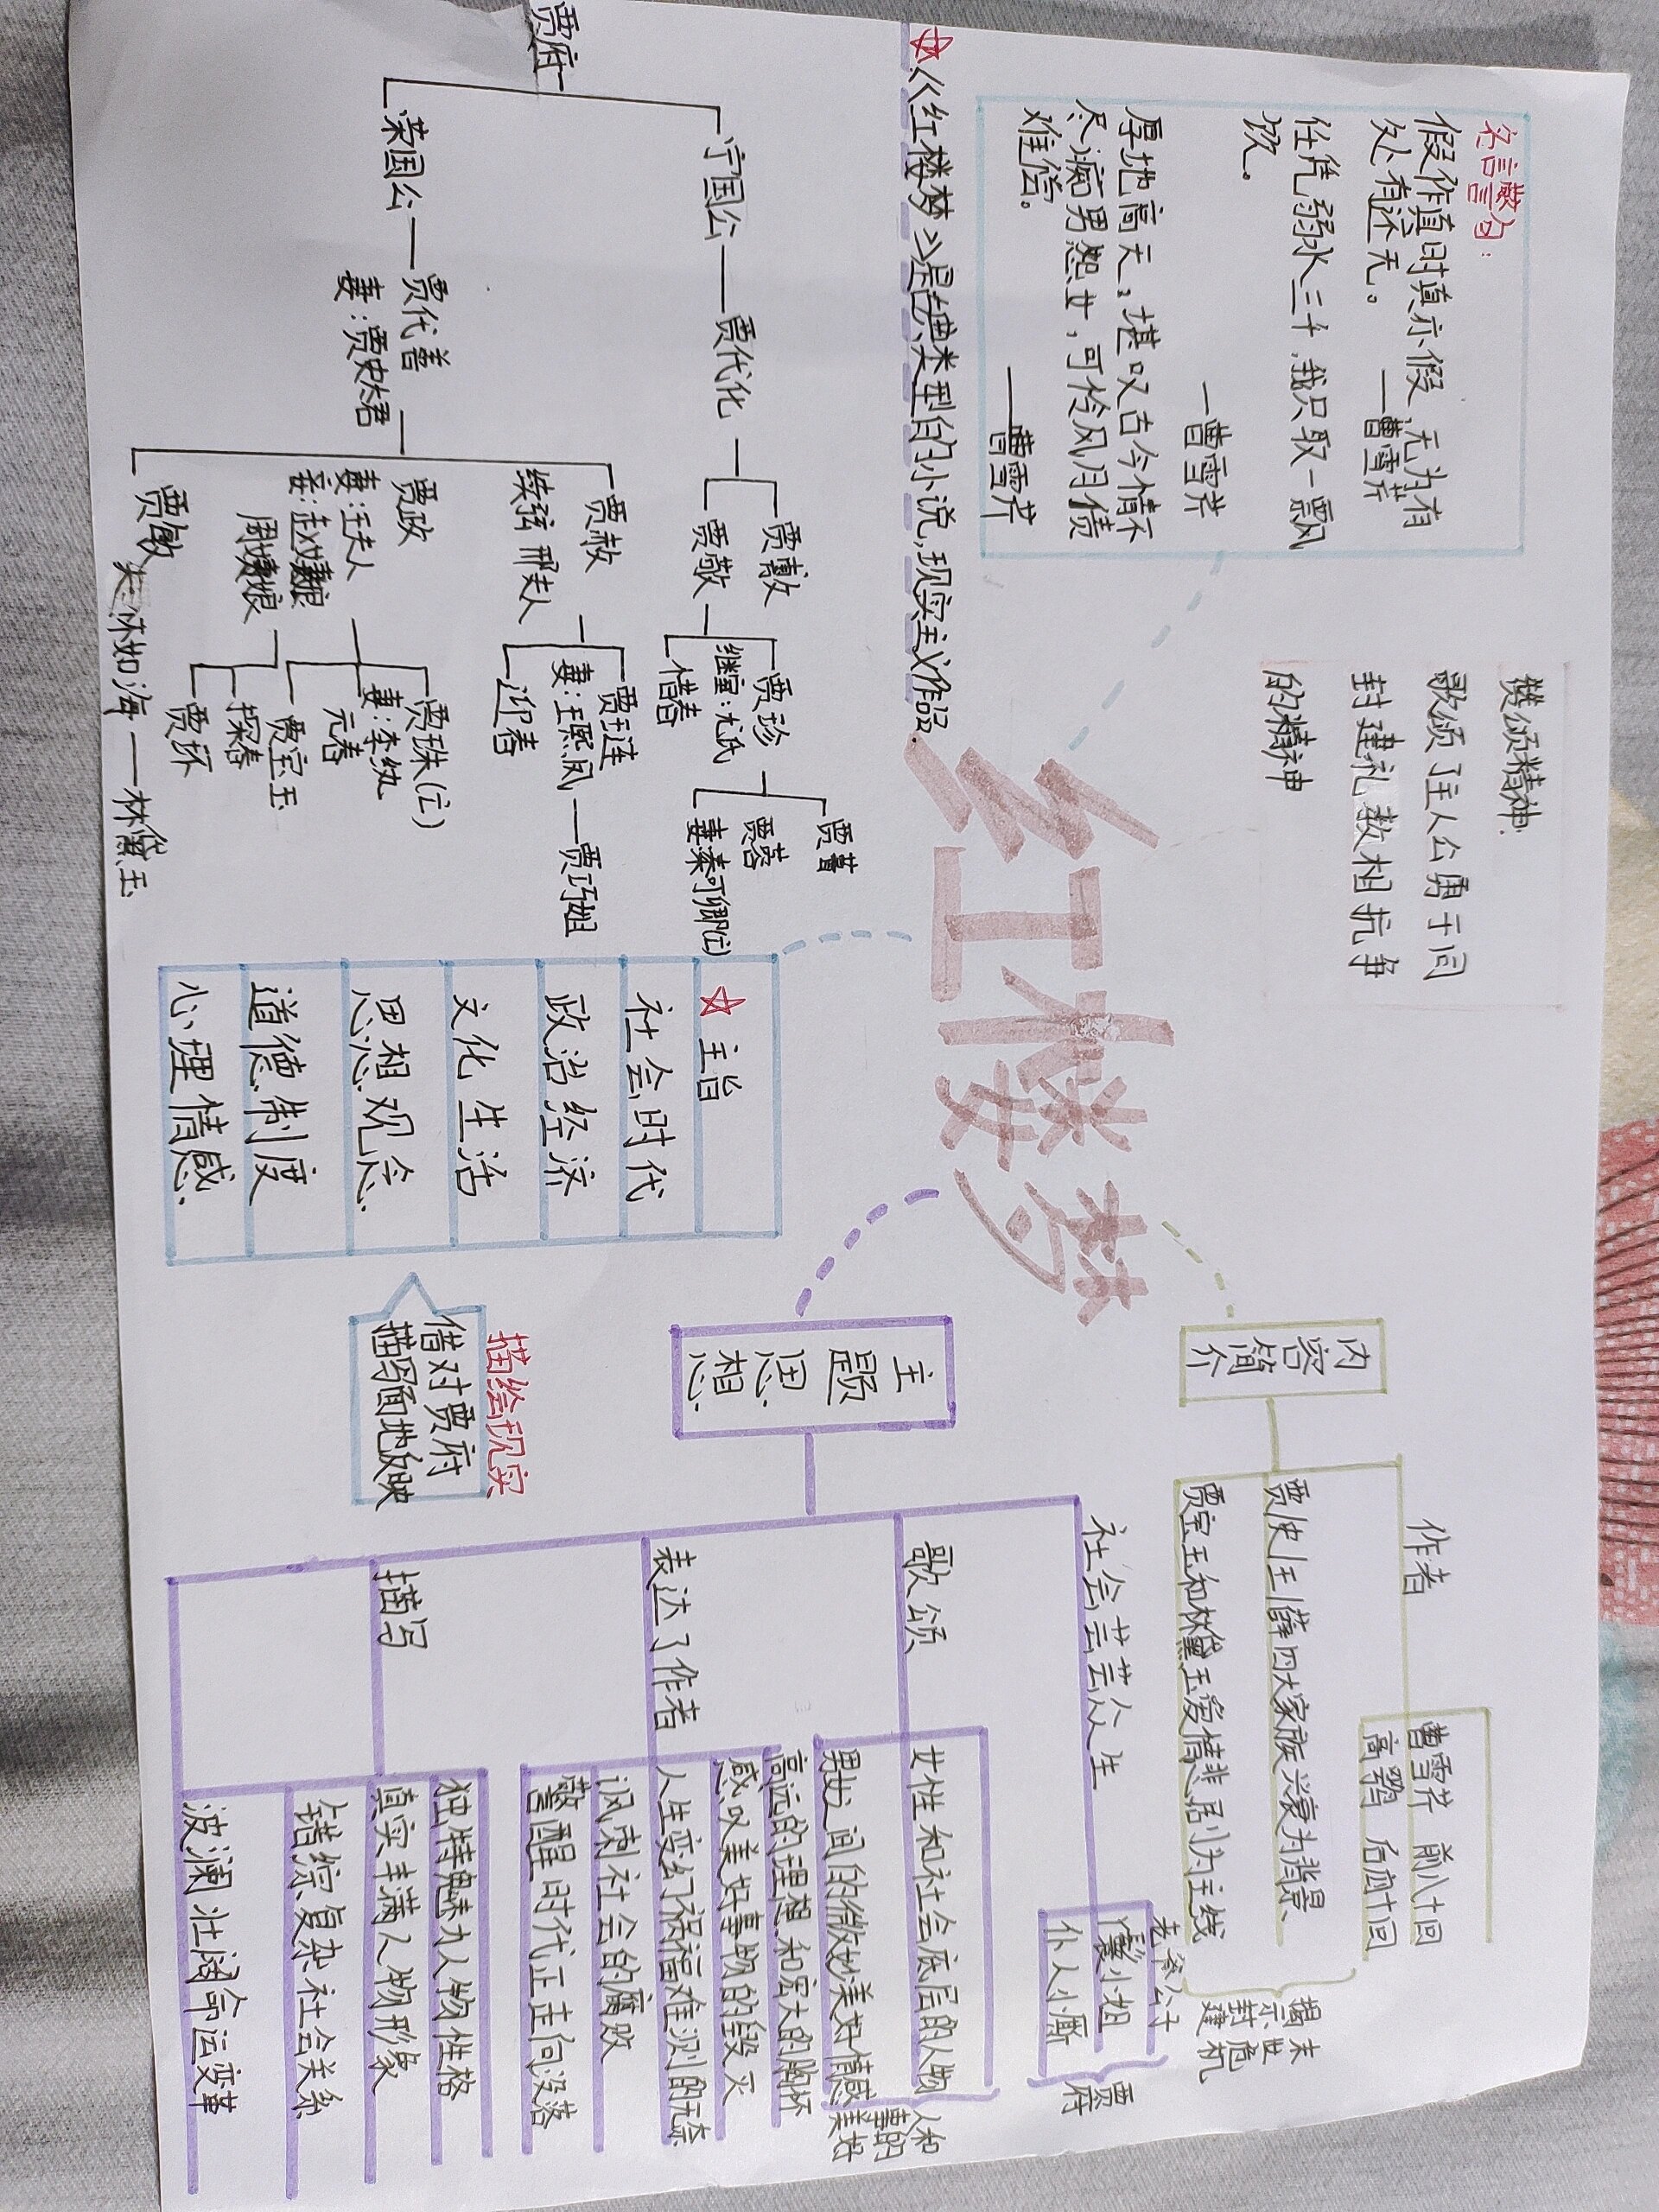 名言警句：
假作真时真亦假，无为有
处有还无。
——曹雪芹
任凭弱水三千，我只取一瓢
饮。
一曹雪芹
厚地高天，堪叹古今情不
尽；痴男怨女，可怜风月债
难偿。
——曹雪芹
赞颂精神：
歌颂了主人公勇于同
封建礼教相抗争
的精神
☆《红楼梦》是古典类型的小说，现实主义作品.
红楼梦
内容简介
作者
曹雪芹 前八十回
高鹗 后四十回
贾史王薛四大家族兴衰为背景
贾宝玉和林黛玉爱情悲剧为主线
揭示封建
末世危机
主题思想
社会芸芸众生
老爷公子
丫鬟小姐
仆人小厮
贾府
歌颂
女性和社会底层的人物
男女之间的微妙美好情感
人和
事的
美好
表达了作者
高远的理想和宏大的胸怀
感叹美好事物的毁灭
人生变幻祸福难测的无奈
讽刺社会的腐败
警醒时代正走向没落
描写
独特魅力人物性格
真实丰满人物形象
错综复杂社会关系
波澜壮阔命运变革
☆主旨
社会时代
政治经济
文化生活
思想观念
道德制度
心理情感
描绘现实
借对贾府
描写面地反映
贾府
宁国公——贾代化
贾敷
贾敬
贾珍
继室：尤氏
惜春
贾蔷
贾蓉
妻秦可卿(亡)
荣国公——贾代善
妻：贾史太君
贾赦
续弦 邢夫人
贾琏
妻：王熙凤——贾巧姐
迎春
贾政
妻：王夫人
妾：赵姨娘
周姨娘
贾珠(亡)
妻：李纨
元春
贾宝玉
探春
贾环
贾敏
夫：林如海——林黛玉